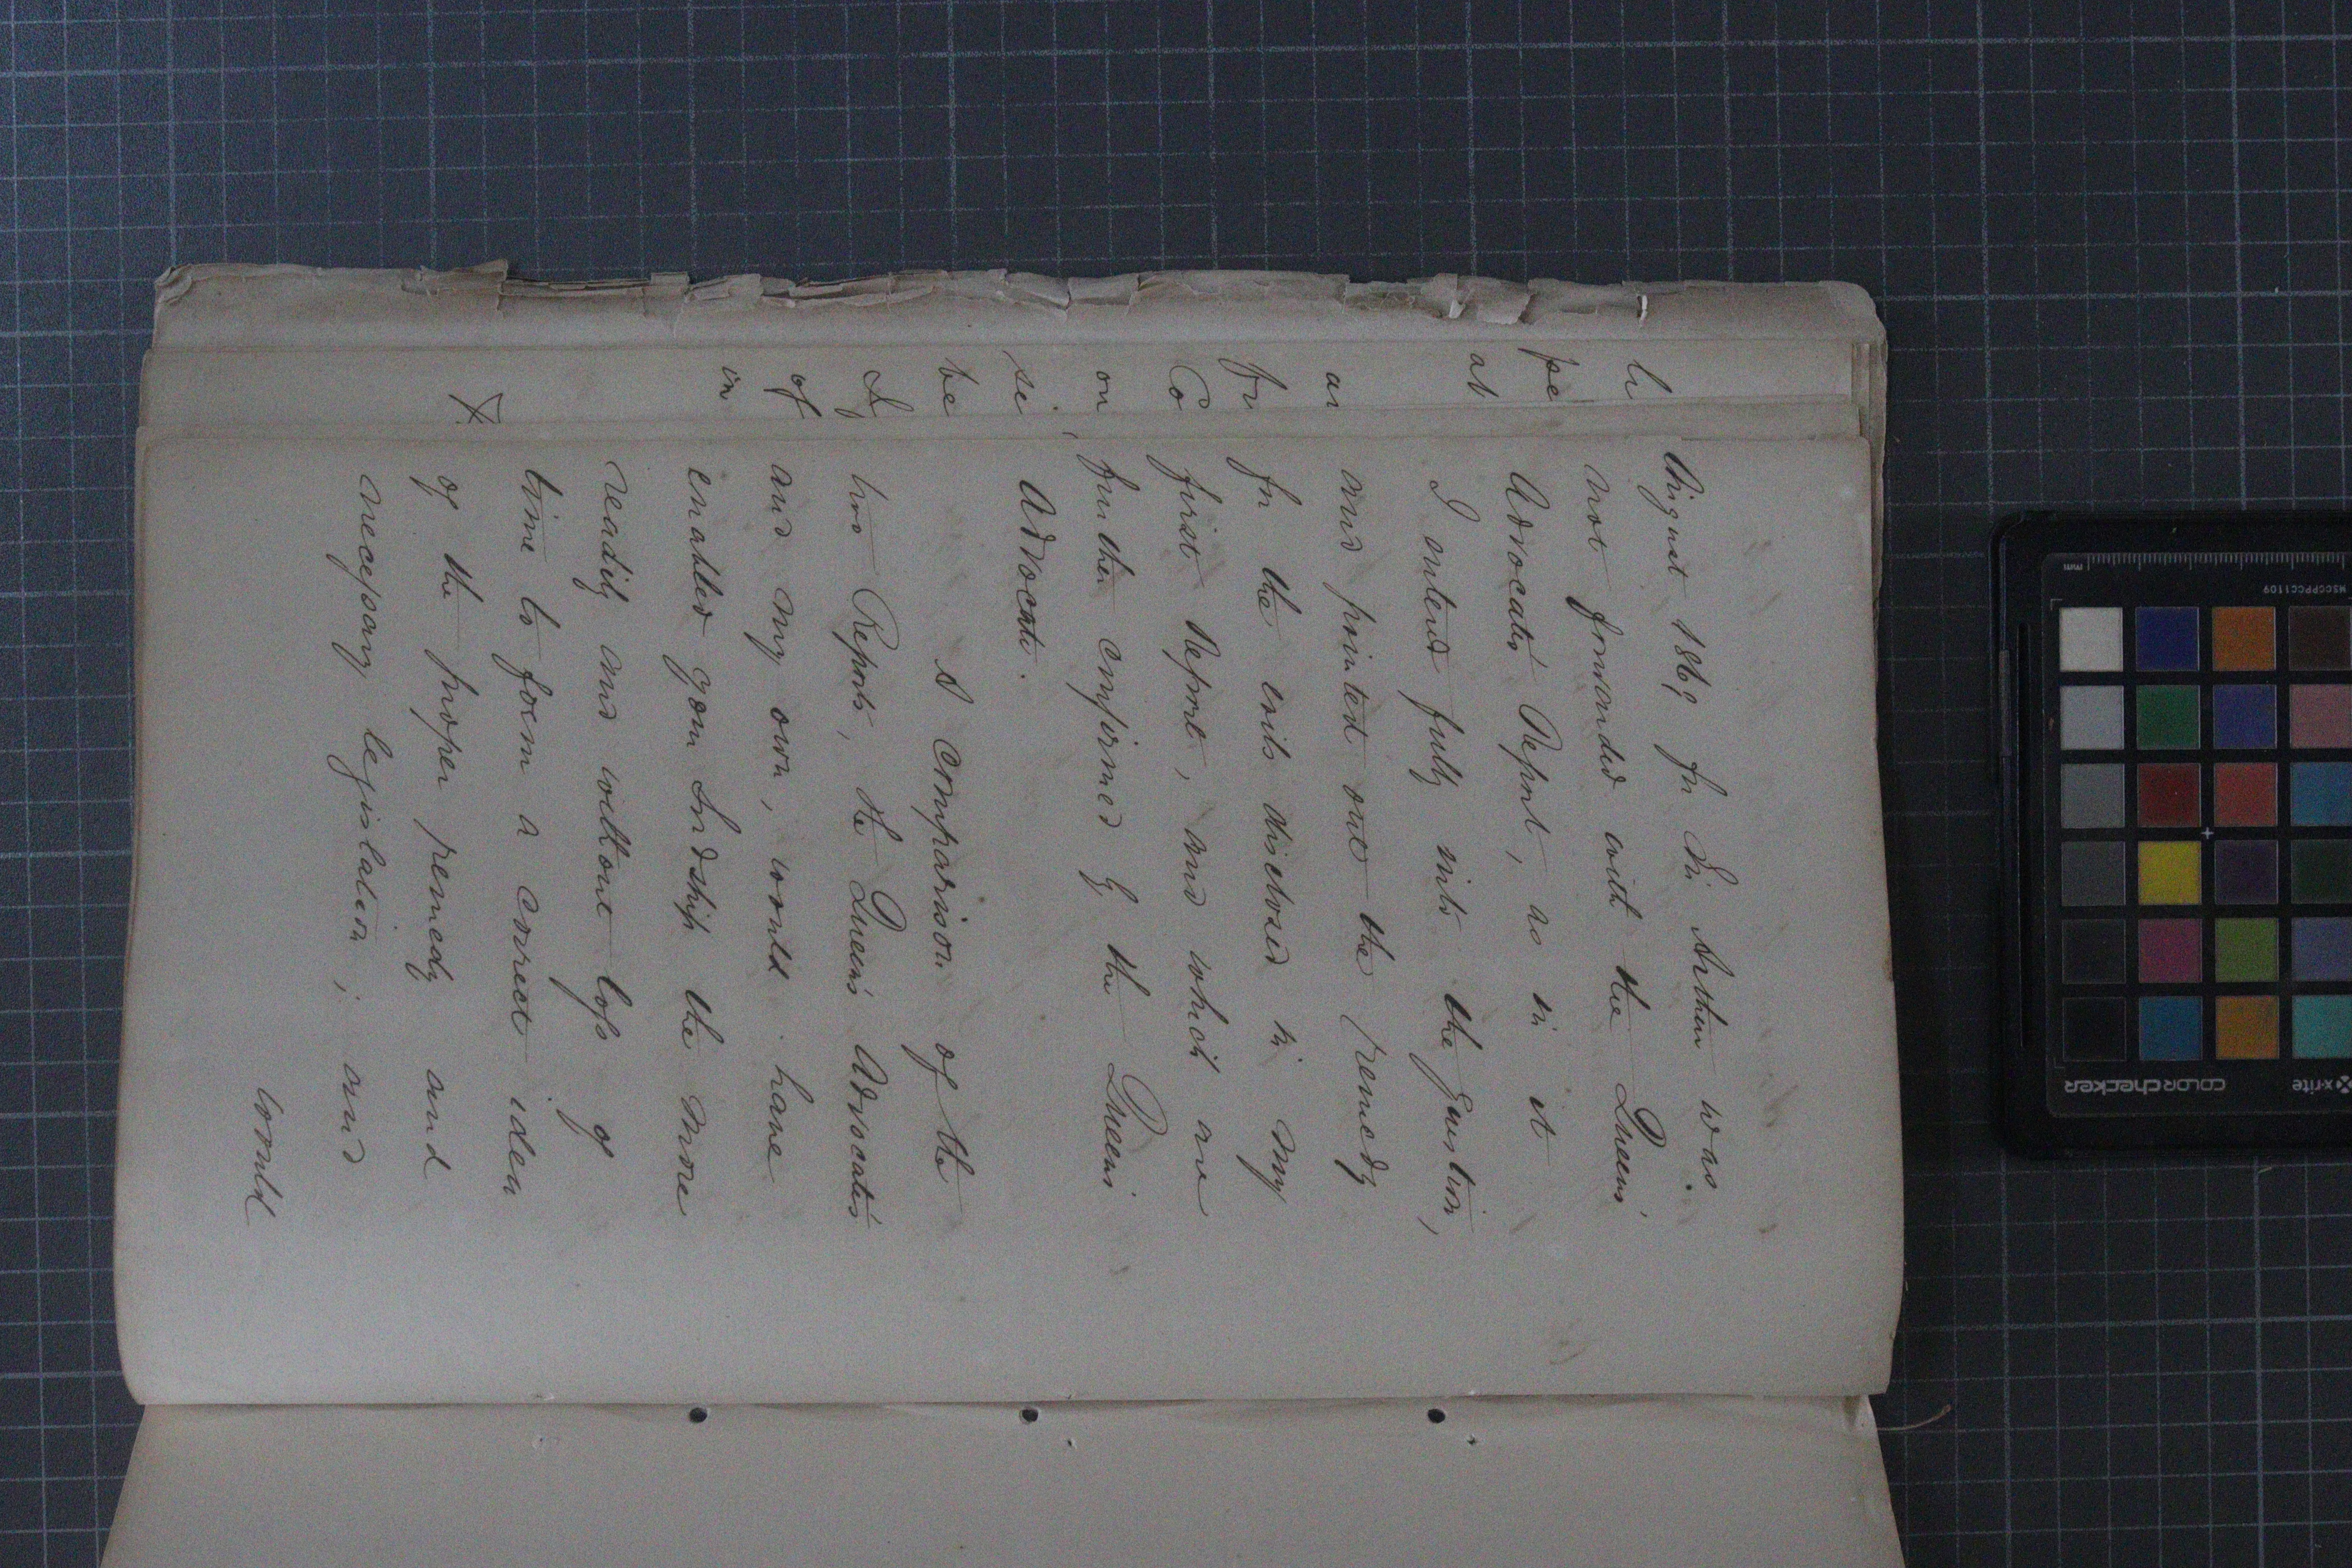 August 1869 for Sir Arthur was
not forwarded with the Queen's
Advocate's Report, as in it
I entered fully into the question,
and pointed out the remedy
for the evils disclosed in my
first Report, and which are
further confirmed by the Queen's
Advocate.
A comparison of the
two Reports, the Queen's Advocate's
and my own, would have
enabled your Lordship the more
readily and without loss of
time to form a correct idea
of the proper remedy and
necessary legislation; and
would
li
pe
at
as
fr
Co
on
se
be
I
of
in